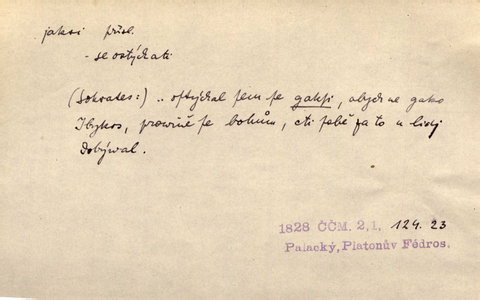 jaksi přísl.
- se ostýchati
(Sokrates:) .. ostýchal sem se gaksi, abych ne gako
Ibykos, prowině se bohům, cti sobě za to u lidj
dobýwal.
1828 ČČM. 2,1. 124. 23
Palacký, Platonův Fédros.